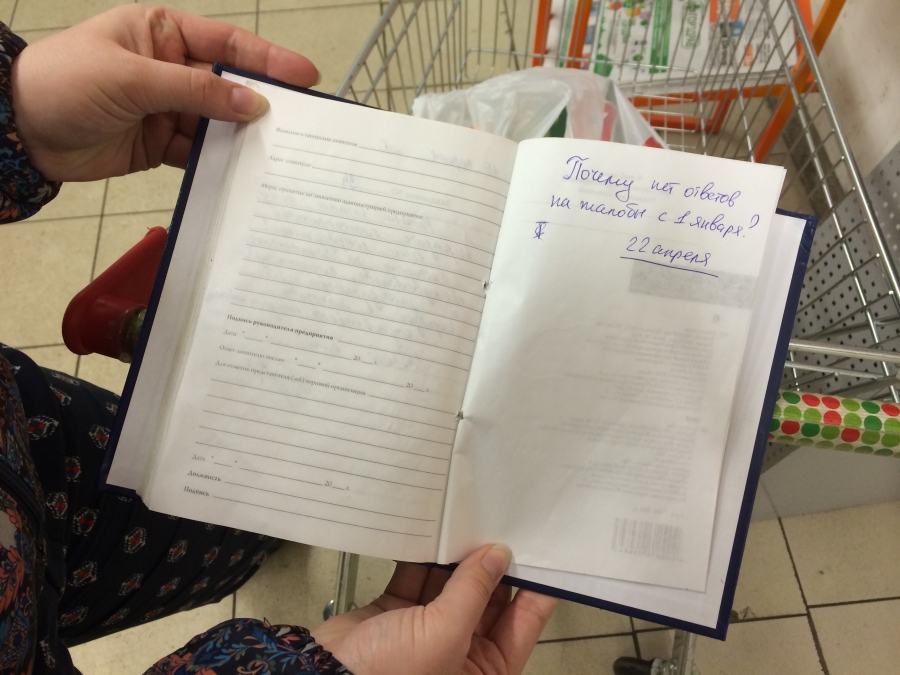 Фамилия и инициалы заявителя
Адрес заявителя
Меры, принятые по заявлению администрацией предприятия
Подпись руководителя предприятия
Дата " " 20 г.
Ответ заявителю послан " " 20 г.
Для отметок представителя
Дата " " 20 г.
Должность
Подпись
Почему нет ответов
на жалобы с 1 января?
22 апреля